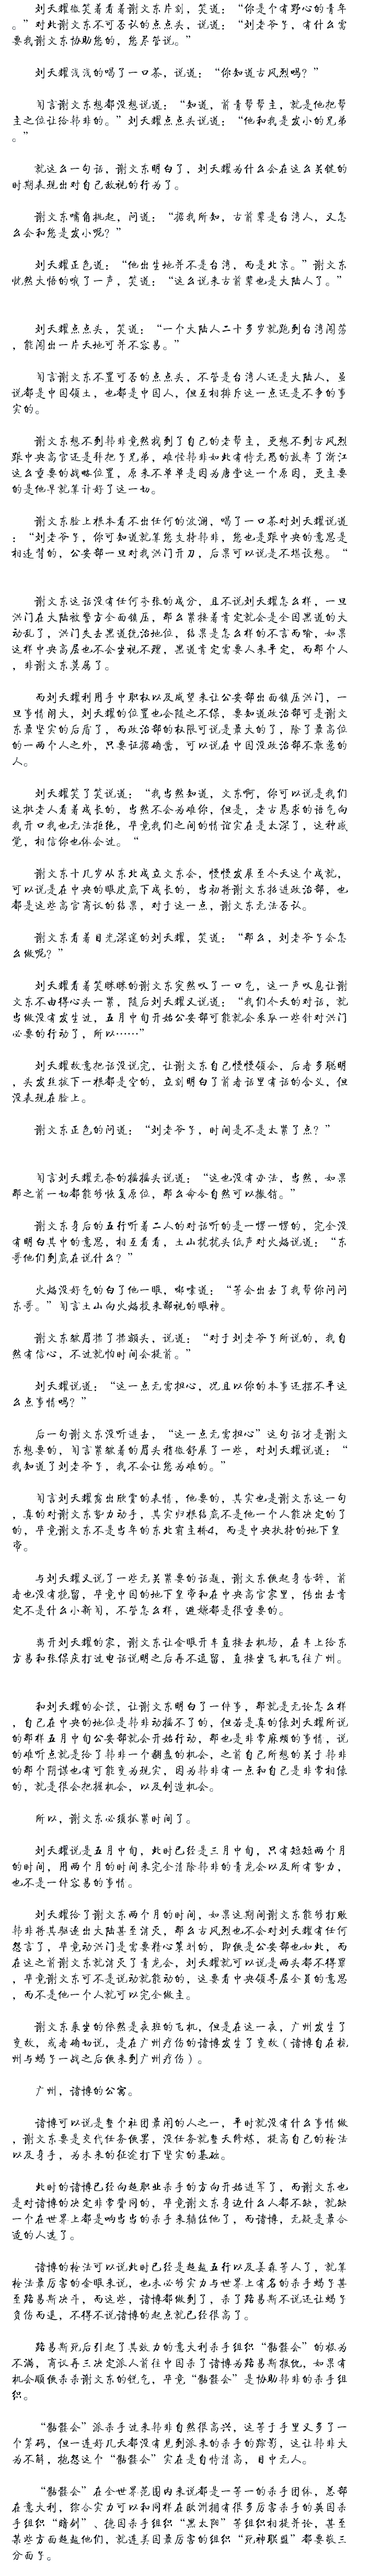 刘天耀微笑着看着谢文东片刻，笑道：“你是个有野心的青年
。”对此谢文东不可否认的点点头，说道：“刘老爷子，有什么需
要我谢文东协助您的，您尽管说。”
刘天耀浅浅的喝了一口茶，说道：“你知道古风烈吗？”
闻言谢文东想都没想说道：“知道，前青帮帮主，就是他把帮
主之位让给韩非的。”刘天耀点点头说道：“他和我是发小的兄弟
。”
就这么一句话，谢文东明白了，刘天耀为什么会在这么关键的
时期表现出对自己敌视的行为了。
谢文东嘴角挑起，问道：“据我所知，古前辈是台湾人，又怎
么会和您是发小呢？”
刘天耀正色道：“他出生地并不是台湾，而是北京。”谢文东
恍然大悟的哦了一声，笑道：“这么说来古前辈也是大陆人了。”
刘天耀点点头，笑道：“一个大陆人二十多岁就跑到台湾闯荡
，能闯出一片天地可并不容易。”
闻言谢文东不置可否的点点头，不管是台湾人还是大陆人，虽
说都是中国领土，也都是中国人，但互相排斥这一点还是不争的事
实的。
谢文东想不到韩非竟然找到了自己的老帮主，更想不到古风烈
跟中央高官还是拜把子兄弟，难怪韩非如此有恃无恐的放弃了浙江
这么重要的战略位置，原来不单单是因为唐堂这一个原因，更主要
的是他早就算计好了这一切。
谢文东脸上根本看不出任何的波澜，喝了一口茶对刘天耀说道
：“刘老爷子，你可知道就算您支持韩非，您也是跟中央的意思是
相违背的，公安部一旦对我洪门开刀，后果可以说是不堪设想。“
谢文东这话没有任何夸张的成分，且不说刘天耀怎么样，一旦
洪门在大陆被警方全面镇压，那么紧接着肯定就会是全国黑道的大
动乱了，洪门失去黑道统治地位，结果是怎么样的不言而喻，如果
这样中央高层也不会坐视不理，黑道肯定需要人来平定，而那个人
，非谢文东莫属了。
而刘天耀利用手中职权以及威望来让公安部出面镇压洪门，一
旦事情闹大，刘天耀的位置也会随之不保，要知道政治部可是谢文
东最坚实的后盾了，而政治部的权限可说是最大的了，除了最高位
的一两个人之外，只要证据确凿，可以说在中国没政治部不敢惹的
人。
刘天耀笑了笑说道：“我当然知道，文东啊，你可以说是我们
这批老人看着成长的，当然不会为难你，但是，老古恳求的语气向
我开口我也无法拒绝，毕竟我们之间的情谊实在是太深了，这种感
觉，相信你也体会过。“
谢文东十几岁从东北成立文东会，慢慢发展至今天这个成就，
可以说是在中央的眼皮底下成长的，当初将谢文东招进政治部，也
都是这些高官商议的结果，对于这一点，谢文东无法否认。
谢文东看着目光深邃的刘天耀，笑道：“那么，刘老爷子会怎
么做呢？”
刘天耀看着笑眯眯的谢文东突然叹了一口气，这一声叹息让谢
文东不由得心头一紧，随后刘天耀又说道：“我们今天的对话，就
当做没有发生过，五月中旬开始公安部可能就会采取一些针对洪门
必要的行动了，所以……”
刘天耀故意把话没说完，让谢文东自己慢慢领会，后者多聪明
，头发丝拔下一根都是空的，立刻明白了前者话里有话的含义，但
没表现在脸上。
谢文东正色的问道：“刘老爷子，时间是不是太紧了点？”
闻言刘天耀无奈的摇摇头说道：“这也没有办法，当然，如果
那之前一切都能够恢复原位，那么命令自然可以撤销。”
谢文东身后的五行听着二人的对话听的是一愣一愣的，完全没
有明白其中的意思，相互看看，土山挠挠头低声对火焰说道：“东
哥他们到底在说什么？”
火焰没好气的白了他一眼，嘟囔道：“等会出去了我帮你问问
东哥。”闻言土山向火焰投来鄙视的眼神。
谢文东皱眉揉了揉额头，说道：“对于刘老爷子所说的，我自
然有信心，不过就怕时间会提前。”
刘天耀说道：“这一点无需担心，况且以你的本事还摆不平这
么点事情吗？”
后一句谢文东没听进去，“这一点无需担心”这句话才是谢文
东想要的，闻言紧皱着的眉头稍微舒展了一些，对刘天耀说道：“
我知道了刘老爷子，我不会让您为难的。”
闻言刘天耀露出欣赏的表情，他要的，其实也是谢文东这一句
，真的对谢文东势力动手，其实归根结底不是他一个人能决定的了
的，毕竟谢文东不是当年的东北霸主桥4，而是中央扶持的地下皇
帝。
与刘天耀又说了一些无关紧要的话题，谢文东便起身告辞，前
者也没有挽留，毕竟中国的地下皇帝和在中央高官家里，传出去肯
定不是什么小新闻，不管怎么样，避嫌都是很重要的。
离开刘天耀的家，谢文东让金眼开车直接去机场，在车上给东
方易和张保庆打过电话说明之后再不逗留，直接坐飞机飞往广州。
和刘天耀的会谈，让谢文东明白了一件事，那就是无论怎么样
，自己在中央的地位是韩非动摇不了的，但若是真的像刘天耀所说
的那样五月中旬公安部就会开始行动，那也是非常麻烦的事情，说
的难听点就是给了韩非一个翻盘的机会，之前自己所想的关于韩非
的那个阴谋也有可能变为现实，因为韩非有一点和自己是非常相像
的，就是很会把握机会，以及创造机会。
所以，谢文东必须抓紧时间了。
刘天耀说是五月中旬，此时已经是三月中旬，只有短短两个月
的时间，用两个月的时间来完全清除韩非的青龙会以及所有势力，
也不是一件容易的事情。
刘天耀给了谢文东两个月的时间，如果这期间谢文东能够打败
韩非将其驱逐出大陆甚至消灭，那么古风烈也不会对刘天耀有任何
怨言了，毕竟动洪门是需要精心策划的，即便是公安部也如此，而
在这之前谢文东就消灭了青龙会，刘天耀就可以说是两头都不得罪
，毕竟谢文东可不是说动就能动的，这要看中央领导层全员的意思
，而不是他一个人就可以完全做主。
谢文东乘坐的依然是夜班的飞机，但是在这一夜，广州发生了
变故，或者确切说，是在广州疗伤的诸博发生了变故（诸博自在杭
州与蝎子一战之后便来到广州疗伤）。
广州，诸博的公寓。
诸博可以说是整个社团最闲的人之一，平时就没有什么事情做
，谢文东要是交代任务便罢，没任务就整天修炼，提高自己的枪法
以及身手，为未来的征途打下坚实的基础。
此时的诸博已经向超职业杀手的方向开始进军了，而谢文东也
是对诸博的决定非常赞同的，毕竟谢文东身边什么人都不缺，就缺
一个在世界上都是响当当的杀手来辅佐他了，而诸博，无疑是最合
适的人选了。
诸博的枪法可以说此时已经是超越五行以及姜森等人了，就算
枪法最厉害的金眼来说，也未必够实力与世界上有名的杀手蝎子甚
至路易斯决斗，而这些，诸博都做到了，杀了路易斯不说还让蝎子
负伤而退，不得不说诸博的起点就已经很高了。
路易斯死后引起了其效力的意大利杀手组织“骷髅会”的极为
不满，商议再三决定派人前往中国杀了诸博为路易斯报仇，如果有
机会顺便杀杀谢文东的锐气，毕竟“骷髅会”是协助韩非的杀手组
织。
“骷髅会”派杀手过来韩非自然很高兴，这等于手里又多了一
个筹码，但一连好几天都没有见到派来的杀手的踪影，这让韩非大
为不解，抱怨这个“骷髅会”实在是自恃清高，目中无人。
“骷髅会”在全世界范围内来说都是一等一的杀手团体，总部
在意大利，综合实力可以和同样在欧洲拥有很多厉害杀手的英国杀
手组织“暗剑”、德国杀手组织“黑太阳”等组织相提并论，甚至
某些方面超越他们，就连美国最厉害的组织“死神联盟”都要敬三
分面子。